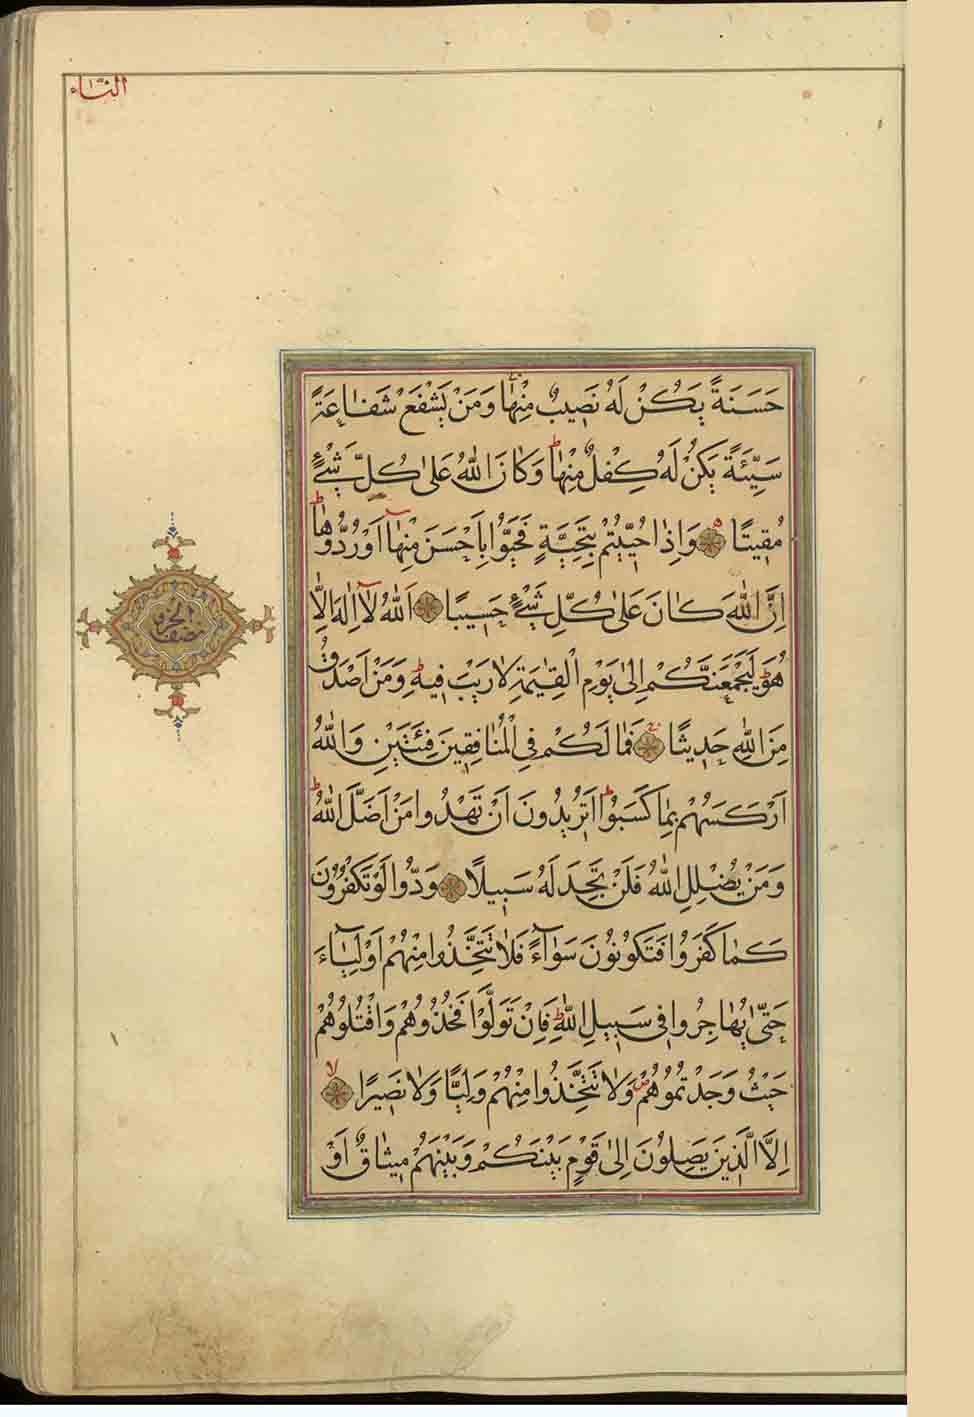 النساء
حَسَنَةً يَكُنْ لَهُ نَصِيبٌ مِنْهَا وَمَنْ يَشْفَعْ شَفَاعَةً
سَيِّئَةً يَكُنْ لَهُ كِفْلٌ مِنْهَا ط وَكَانَ اللّٰهُ عَلٰى كُلِّ شَيْءٍ
مُقِيتًا وَاِذَا حُيِّيتُمْ بِتَحِيَّةٍ فَحَيُّوا بِاَحْسَنَ مِنْهَآ اَوْ رُدُّوهَا ط
اِنَّ اللّٰهَ كَانَ عَلٰى كُلِّ شَيْءٍ حَسِيبًا اَللّٰهُ لَآ اِلٰهَ اِلَّا
هُوَ ط لَيَجْمَعَنَّكُمْ اِلٰى يَوْمِ الْقِيٰمَةِ لَا رَيْبَ فِيهِ ط وَمَنْ اَصْدَقُ
مِنَ اللّٰهِ حَدِيثًا فَمَا لَكُمْ فِي الْمُنَافِقِينَ فِئَتَيْنِ وَاللّٰهُ
اَرْكَسَهُمْ بِمَا كَسَبُوا ط اَتُرِيدُونَ اَنْ تَهْدُوا مَنْ اَضَلَّ اللّٰهُ ط
وَمَنْ يُضْلِلِ اللّٰهُ فَلَنْ تَجِدَ لَهُ سَبِيلًا وَدُّوا لَوْ تَكْفُرُونَ
كَمَا كَفَرُوا فَتَكُونُونَ سَوَآءً فَلَا تَتَّخِذُوا مِنْهُمْ اَوْلِيَآءَ
حَتّٰى يُهَاجِرُوا فِي سَبِيلِ اللّٰهِ ط فَاِنْ تَوَلَّوْا فَخُذُوهُمْ وَاقْتُلُوهُمْ
حَيْثُ وَجَدْتُمُوهُمْ ص وَلَا تَتَّخِذُوا مِنْهُمْ وَلِيًّا وَلَا نَصِيرًا لا
اِلَّا الَّذِينَ يَصِلُونَ اِلٰى قَوْمٍ بَيْنَكُمْ وَبَيْنَهُمْ مِيثَاقٌ اَوْ
نصف الحزب